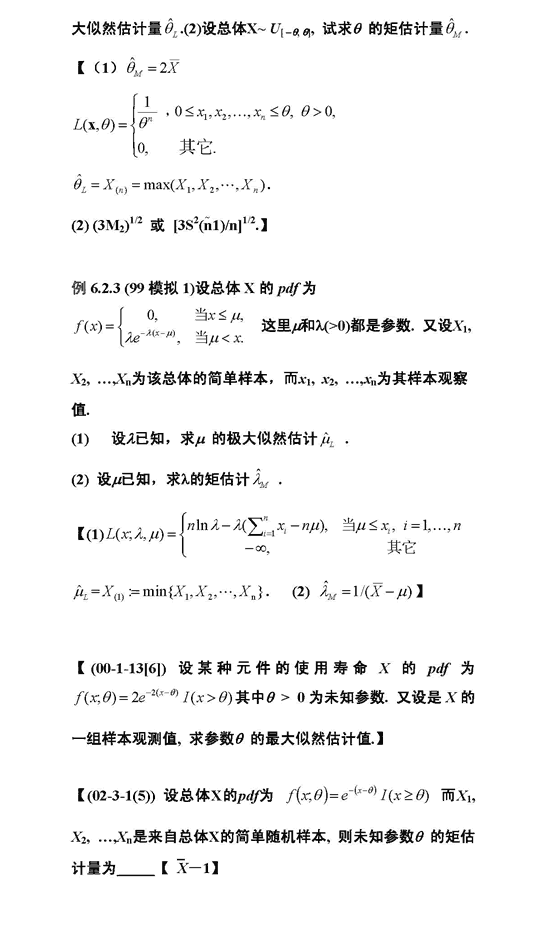 大似然估计量 θ̂_L .(2)设总体X~ U[-θ, θ], 试求θ 的矩估计量 θ̂_M .
【（1）θ̂_M = 2X̄
L(x,θ) = { 1/θⁿ , 0 ≤ x₁, x₂, …, xₙ ≤ θ, θ > 0,
0, 其它.
θ̂_L = X₍ₙ₎ = max(X₁, X₂, ⋯, Xₙ).
(2) (3M₂)^1/2 或 [3S²(ñ1)/n]^1/2.】
例 6.2.3 (99 模拟 1)设总体 X 的 pdf 为
f(x) = { 0, 当x ≤ μ,
λe^-λ(x-μ), 当μ < x. 这里μ和λ(>0)都是参数. 又设X₁,
X₂, …,Xₙ为该总体的简单样本，而x₁, x₂, …,xₙ为其样本观察
值.
(1) 设λ已知，求μ 的极大似然估计 μ̂_L .
(2) 设μ已知，求λ的矩估计 λ̂_M .
【(1) L(x; λ, μ) = { n ln λ - λ(∑ⁿᵢ₌₁ xᵢ - nμ), 当μ ≤ xᵢ, i = 1, …, n
-∞, 其它
μ̂_L = X₍₁₎ := min{X₁, X₂, ⋯, Xₙ}. (2) λ̂_M = 1/(X̄ - μ)】
【 (00-1-13[6]) 设 某 种 元 件 的 使 用 寿 命 X 的 pdf 为
f(x;θ) = 2e^-2(x-θ) I(x > θ) 其中θ > 0 为未知参数. 又设是 X 的
一组样本观测值, 求参数θ 的最大似然估计值.】
【(02-3-1(5)) 设总体X的pdf为 f(x;θ) = e^-(x-θ) I(x ≥ θ) 而X₁,
X₂, …,Xₙ是来自总体X的简单随机样本, 则未知参数θ 的矩估
计量为_____【 X̄－1】